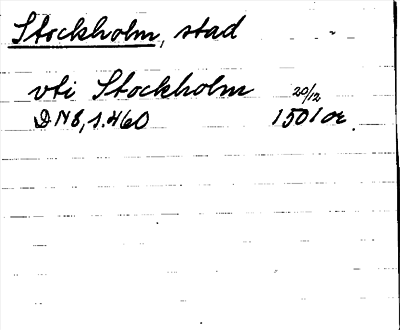 Stockholm, stad
vti Stockholm 20/12
DN8, s. 460 1501 or.